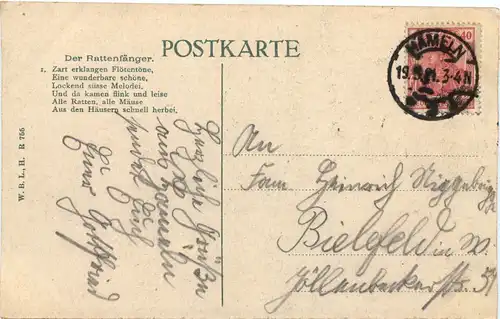 POSTKARTE
Der Rattenfänger.
1. Zart erklangen Flötentöne,
Eine wunderbare schöne,
Lockend süsse Melodei,
Und da kamen flink und leise
Alle Ratten, alle Mäuse
Aus den Häusern schnell herbei.
W. B. L., H. R 755
40
HAMELN
3-4N
Herzliche Grüße
aus Hameln
sendet Euch
Euer Gottfried
An
Fam. Heinrich
Bielefeld in W.
Jöllenbeckerstr. 54